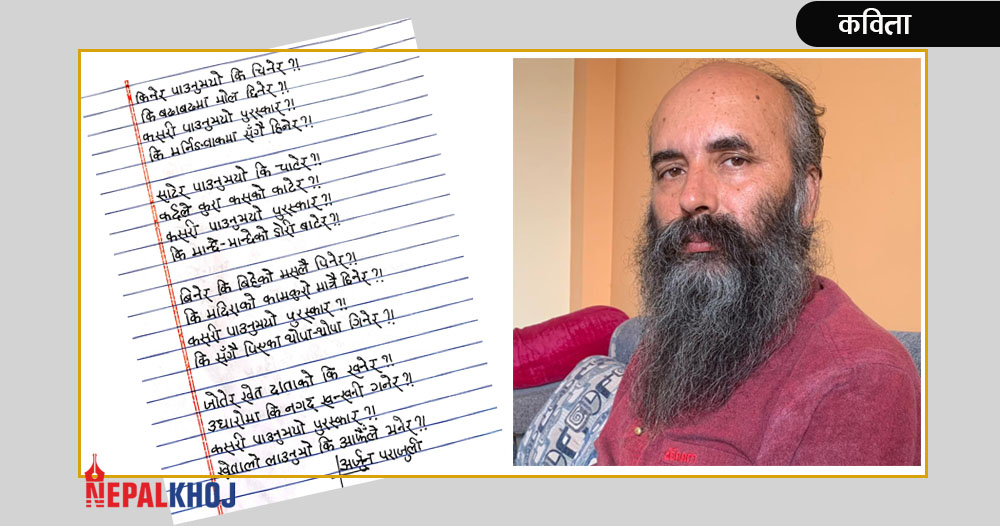 कविता
किनेर पाउनुभयो कि चिनेर ?!
कि बढाबढमा मोल दिनेर ?!
कसरी पाउनुभयो पुरस्कार ?!
कि मर्निङवाकमा सँगै हिनेर ?!
साटेर पाउनुभयो कि चाटेर ?!
कहिले कुरा कसको काटेर ?!
कसरी पाउनुभयो पुरस्कार ?!
कि मान्छे-मान्छेको डोरी बाटेर ?!
बिनेर कि बिहेको मसलै पिनेर ?!
कि मदिराको कामकुरो मात्रै हिनेर ?!
कसरी पाउनुभयो पुरस्कार ?!
कि सँगै पिएका थोपा-थोपा गिनेर ?!
जोतेर खेत दाताको कि खनेर ?!
उधारोमा कि नगद ख-खनी गनेर ?!
कसरी पाउनुभयो पुरस्कार ?!
खेतालो लाउनुभो कि आफैंले भनेर ?!
अर्जुन पराजुली
NEPALKHOJ